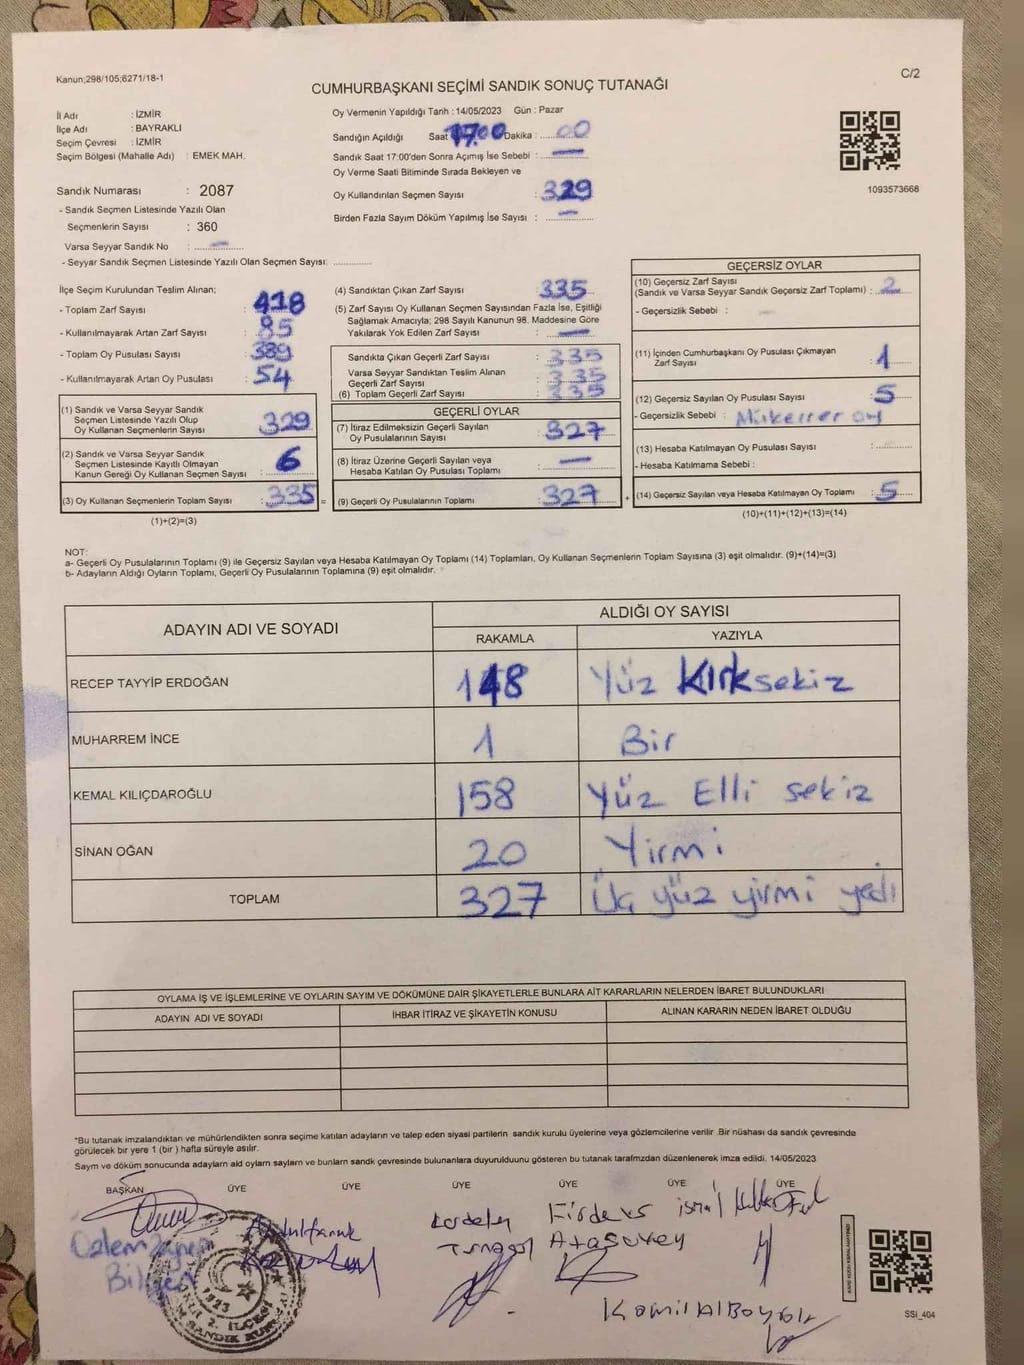 Kanun;298/105;6271/18-1
C/2
CUMHURBAŞKANI SEÇİMİ SANDIK SONUÇ TUTANAĞI
İl Adı : İZMİR
İlçe Adı : BAYRAKLI
Seçim Çevresi : İZMİR
Seçim Bölgesi (Mahalle Adı) : EMEK MAH.
Sandık Numarası : 2087
- Sandık Seçmen Listesinde Yazılı Olan
Seçmenlerin Sayısı : 360
Varsa Seyyar Sandık No : —
- Seyyar Sandık Seçmen Listesinde Yazılı Olan Seçmen Sayısı:
Oy Vermenin Yapıldığı Tarih : 14/05/2023 Gün : Pazar
Sandığın Açıldığı Saat 17.00 Dakika : 00
Sandık Saat 17:00'den Sonra Açımış İse Sebebi : —
Oy Verme Saati Bitiminde Sırada Bekleyen ve
Oy Kullandırılan Seçmen Sayısı : 329
Birden Fazla Sayım Döküm Yapılmış İse Sayısı : —
1093573668
İlçe Seçim Kurulundan Teslim Alınan;
- Toplam Zarf Sayısı : 418
- Kullanılmayarak Artan Zarf Sayısı : 85
- Toplam Oy Pusulası Sayısı : 389
- Kullanılmayarak Artan Oy Pusulası : 54
(1) Sandık ve Varsa Seyyar Sandık
Seçmen Listesinde Yazılı Olup
Oy Kullanan Seçmenlerin Sayısı : 329
(2) Sandık ve Varsa Seyyar Sandık
Seçmen Listesinde Kayıtlı Olmayan
Kanun Gereği Oy Kullanan Seçmen Sayısı : 6
(3) Oy Kullanan Seçmenlerin Toplam Sayısı : 335 =
(1)+(2)=(3)
(4) Sandıktan Çıkan Zarf Sayısı : 335
(5) Zarf Sayısı Oy Kullanan Seçmen Sayısından Fazla İse, Eşitliği
Sağlamak Amacıyla; 298 Sayılı Kanunun 98. Maddesine Göre
Yakılarak Yok Edilen Zarf Sayısı : —
Sandıkta Çıkan Geçerli Zarf Sayısı : 335
Varsa Seyyar Sandıktan Teslim Alınan
Geçerli Zarf Sayısı : 335
(6) Toplam Geçerli Zarf Sayısı : 335
GEÇERLİ OYLAR
(7) İtiraz Edilmeksizin Geçerli Sayılan
Oy Pusulalarının Sayısı : 327
(8) İtiraz Üzerine Geçerli Sayılan veya
Hesaba Katılan Oy Pusulası Toplamı : —
(9) Geçerli Oy Pusulalarının Toplamı : 327 +
GEÇERSİZ OYLAR
(10) Geçersiz Zarf Sayısı
(Sandık ve Varsa Seyyar Sandık Geçersiz Zarf Toplamı) : 2
- Geçersizlik Sebebi : —
(11) İçinden Cumhurbaşkanı Oy Pusulası Çıkmayan
Zarf Sayısı : 1
(12) Geçersiz Sayılan Oy Pusulası Sayısı : 5
- Geçersizlik Sebebi : Mükerrer oy
(13) Hesaba Katılmayan Oy Pusulası Sayısı :
- Hesaba Katılmama Sebebi :
(14) Geçersiz Sayılan veya Hesaba Katılmayan Oy Toplamı : 5
(10)+(11)+(12)+(13)=(14)
NOT:
a- Geçerli Oy Pusulalarının Toplamı (9) ile Geçersiz Sayılan veya Hesaba Katılmayan Oy Toplamı (14) Toplamları, Oy Kullanan Seçmenlerin Toplam Sayısına (3) eşit olmalıdır. (9)+(14)=(3)
b- Adayların Aldığı Oyların Toplamı, Geçerli Oy Pusulalarının Toplamına (9) eşit olmalıdır.
ADAYIN ADI VE SOYADI
ALDIĞI OY SAYISI
RAKAMLA YAZIYLA
RECEP TAYYİP ERDOĞAN 148 Yüz Kırksekiz
MUHARREM İNCE 1 Bir
KEMAL KILIÇDAROĞLU 158 Yüz Elli sekiz
SİNAN OĞAN 20 Yirmi
TOPLAM 327 Üç yüz yirmi yedi
OYLAMA İŞ VE İŞLEMLERİNE VE OYLARIN SAYIM VE DÖKÜMÜNE DAİR ŞİKAYETLERLE BUNLARA AİT KARARLARIN NELERDEN İBARET BULUNDUKLARI
ADAYIN ADI VE SOYADI İHBAR İTİRAZ VE ŞİKAYETİN KONUSU ALINAN KARARIN NEDEN İBARET OLDUĞU
*Bu tutanak imzalandıktan ve mühürlendikten sonra seçime katılan adayların ve talep eden siyasi partilerin sandık kurulu üyelerine veya gözlemcilerine verilir .Bir nüshası da sandık çevresinde
görülecek bir yere 1 (bir ) hafta süreyle asılır.
Sayım ve döküm sonucunda adayların ald oyların sayların ve bunların sandk çevresinde bulunanlara duyurulduunu gösteren bu tutanak tarafmzdan düzenlenerek imza edildi. 14/05/2023
BAŞKAN ÜYE ÜYE ÜYE ÜYE ÜYE ÜYE
Firdevs
Özlem Zeynep
Bilgen
1923
SSİ_404